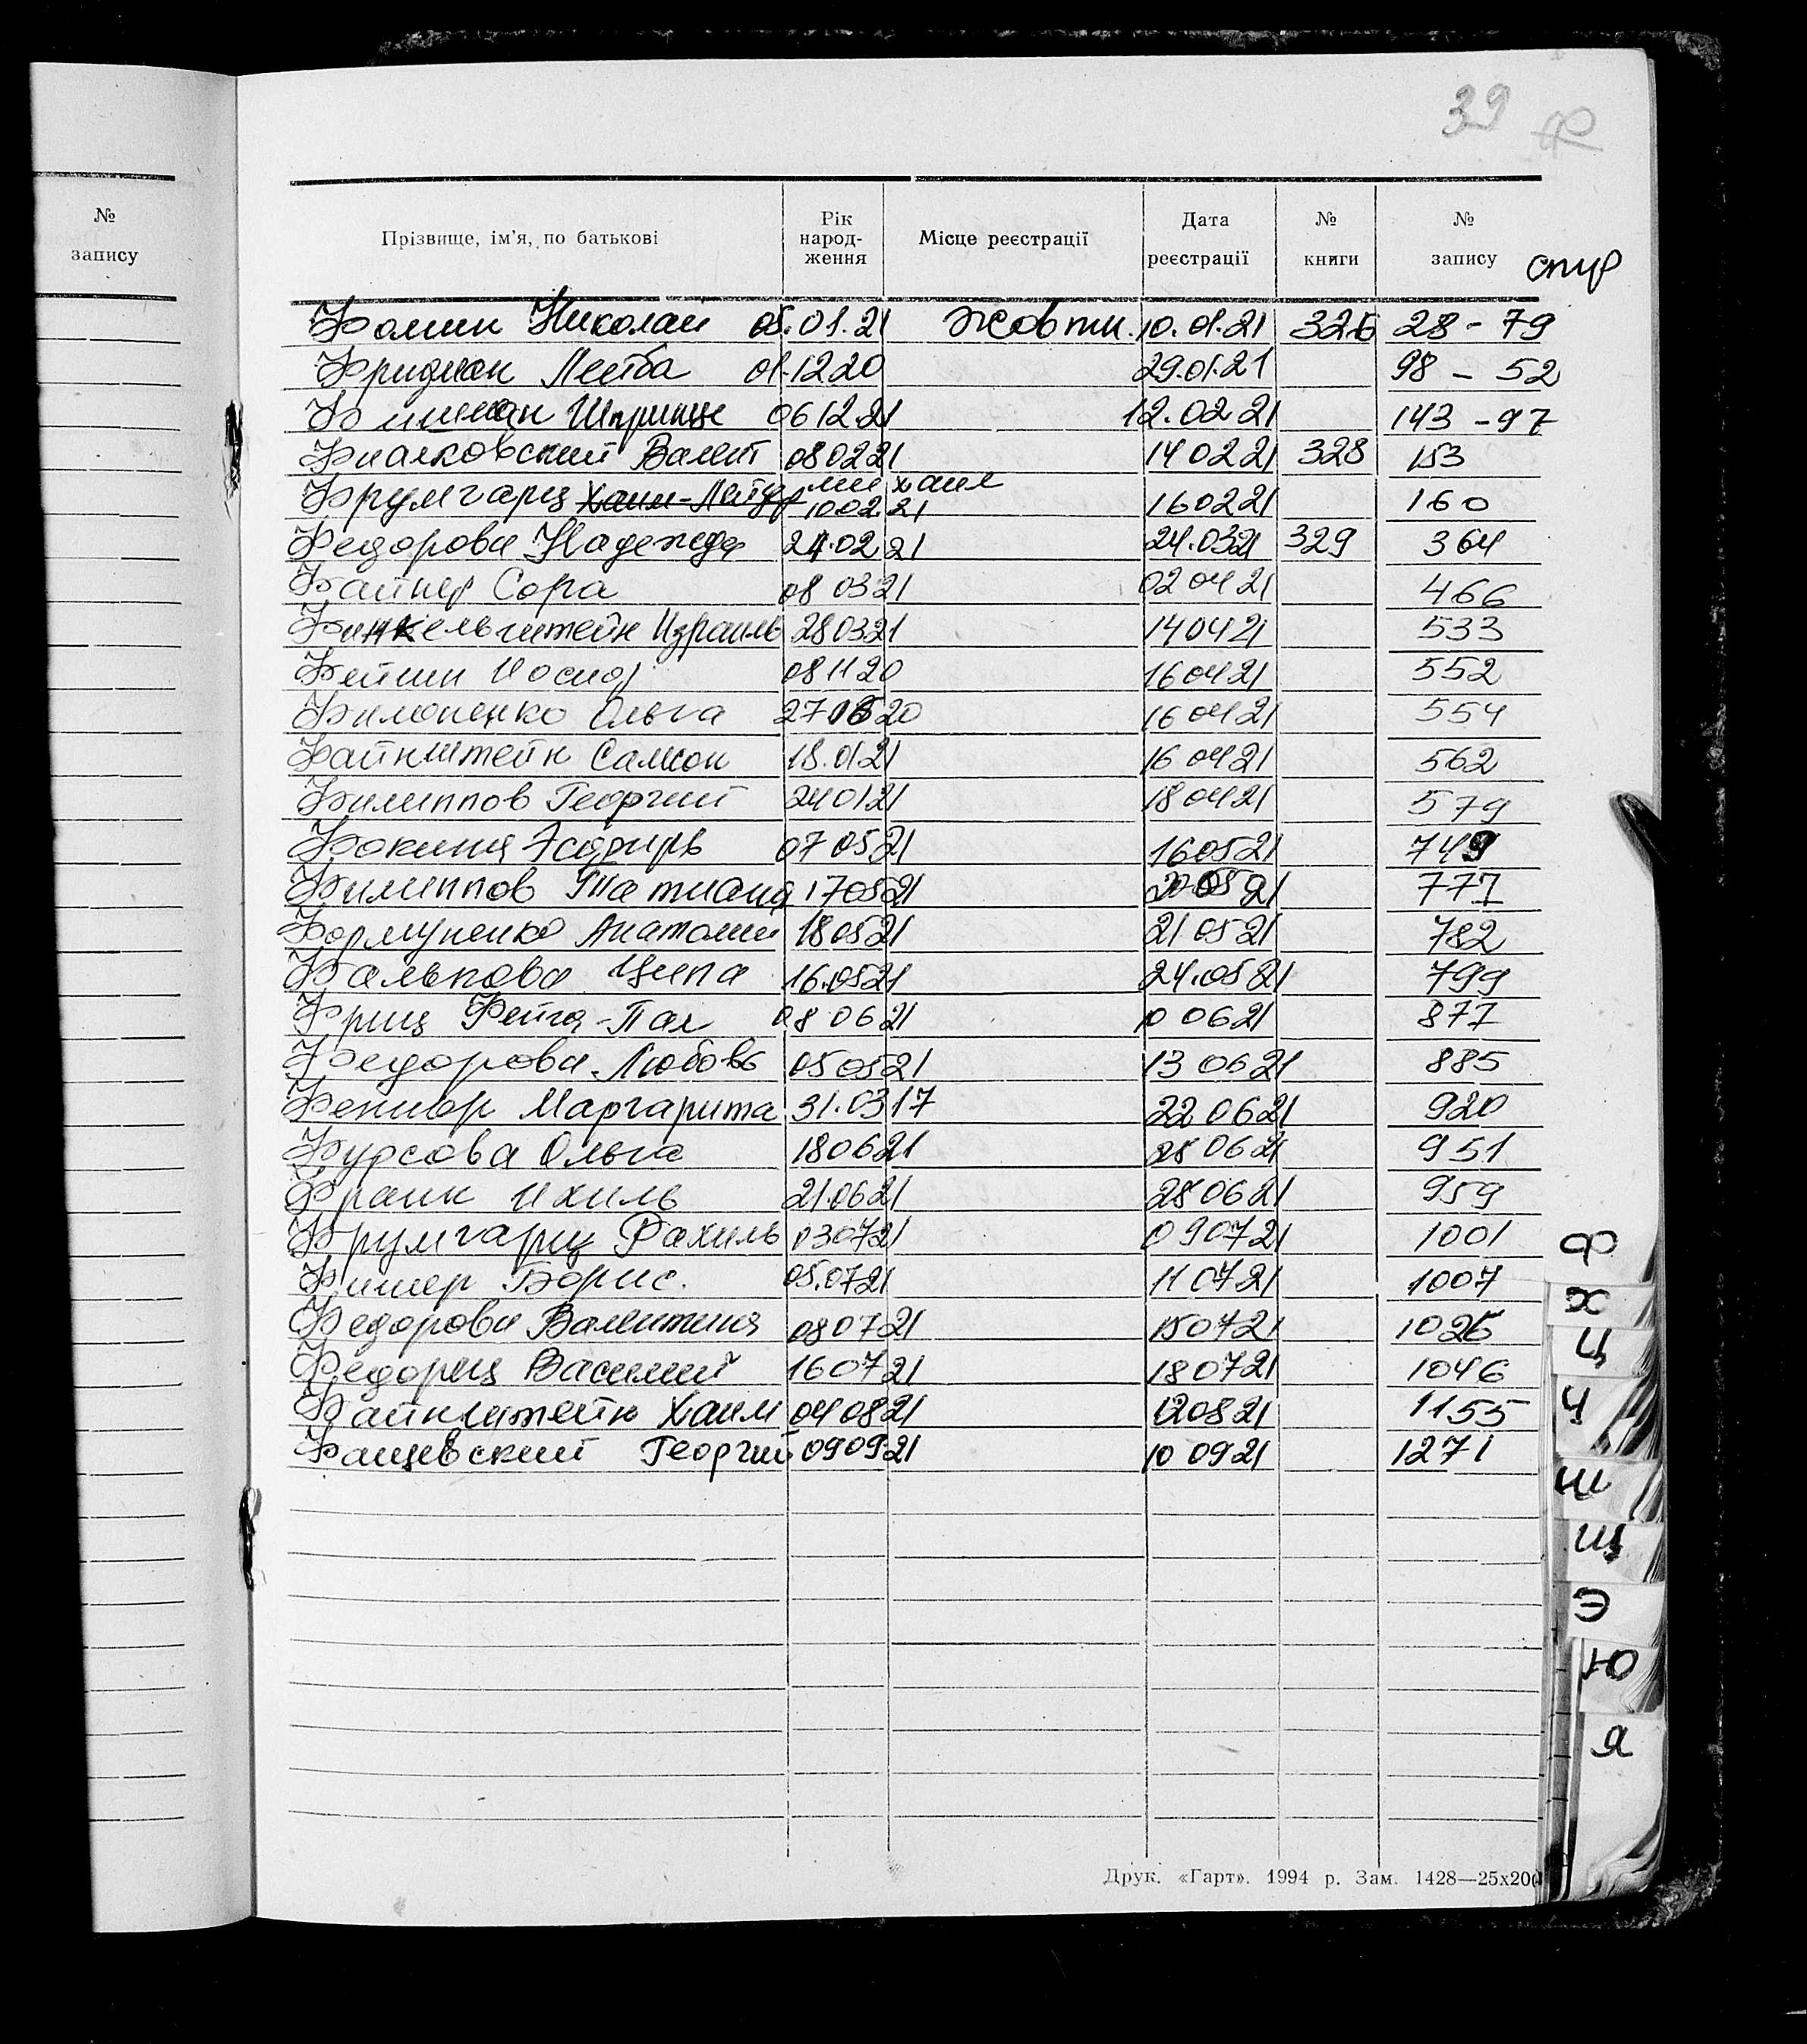 39 Ф
№
запису
Прізвище, ім'я, по батькові
Рік народ-ження
Місце реєстрації
Дата реєстрації
№ книги
№ запису
спир
Фомин Николай 05.01.21 Жовтн. 10.01.21 326 28 - 79
Фридман Лейба 01.1220 29.01.21 98 - 52
Фишман Шпринце 06 12.21 12.02 21 143 - 97
Фиалковский Валент 080221 140221 328 153
Фрумгарц Михаил 1002.21 160221 160
Федорова Надежда 24.02 21 24.0321 329 364
Файнер Сора 08 0321 02 0421 466
Финкельштейн Израиль 280321 140421 533
Фейгин Иосиф 081120 160421 552
Филоненко Ольга 270620 160421 554
Файнштейн Самсон 18.0121 160421 562
Филиппов Георгий 240121 180421 579
Фокина Эсфирь 070521 160521 749
Филиппов Татиана 170521 200521 777
Формуненко Анатолий 180521 21.0521 782
Фалькова Ципа 16.0521 24.0521 799
Фриц Фейга-Пая 080621 100621 877
Федорова Любовь 050521 130621 885
Маргарита 31.0317 220621 920
Фурсова Ольга 180621 280621 951
Франк Ихиль 21.0621 280621 959
Фрумгарц Рахиль 030721 090721 1001
Фишер Борис. 05.0721 110721 1007
Федорова Валентина 080721 150721 1026
Федорец Василий 160721 180721 1046
Файнштейн Хаим 040821 120821 1155
Фащевский Георгий 0909.21 100921 1271
Ф
Х
Ц
Ч
Ш
Щ
Э
Ю
Я
Друк. «Гарт». 1994 р. Зам. 1428—25х200